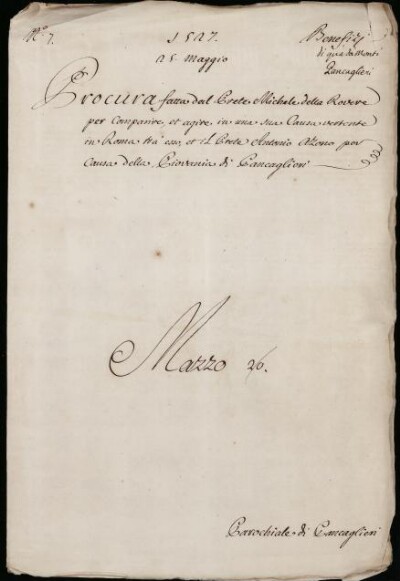 N.º 7.
1527.
25 Maggio
Benefizj
di quà da Monti
Pancaglieri
Procura fatta dal Prete Michele della Rovere
per comparire, et agire in una sua Causa vertente
in Roma trà esso, et il Prete Antonio Alzono per
Causa della Piovania di Pancaglieri
Mazzo 26.
Parochiale di Pancaglieri